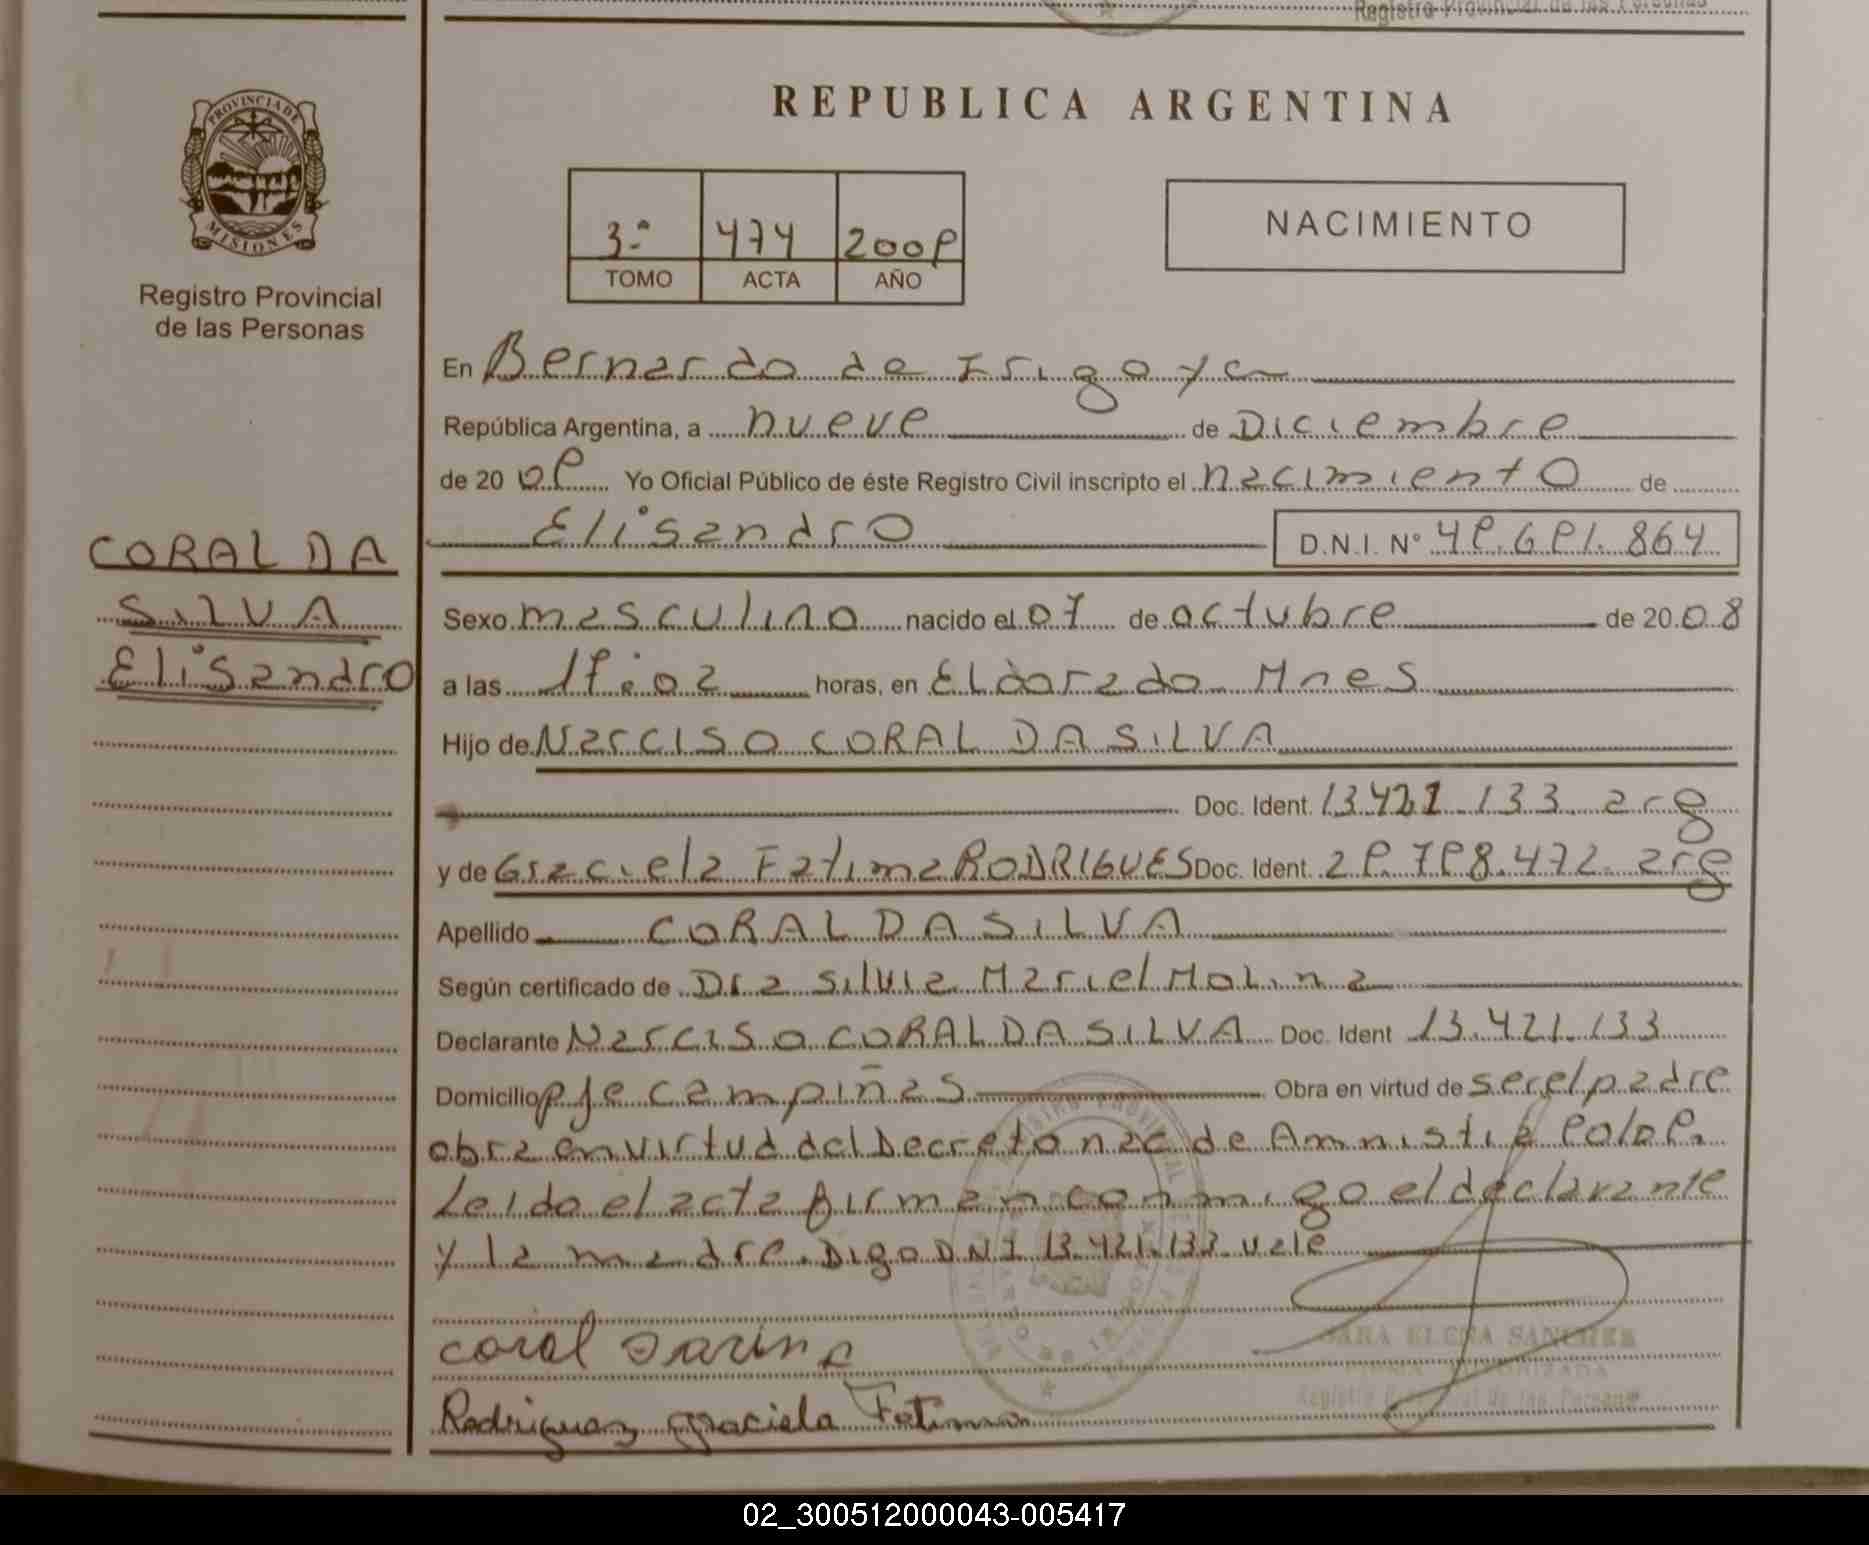 Registro Provincial de las Personas
REPUBLICA ARGENTINA
PROVINCIA DE
MISIONES
Registro Provincial
de las Personas
3º 474 2009
TOMO ACTA AÑO
NACIMIENTO
En Bernardo de Irigoyen
República Argentina, a nueve de Diciembre
de 20 09 Yo Oficial Público de éste Registro Civil inscripto el nacimiento de
Elisandro D.N.I. N° 49.691.864
CORAL DA
SILVA
Elisandro
Sexo masculino nacido el 07 de octubre de 20 08
a las 19:02 horas, en Eldorado Mnes
Hijo de Narciso CORAL DA SILVA
Doc. Ident. 13.421.133 arg
y de Graciela Fatima RODRIGUES Doc. Ident. 29.798.472. arg
Apellido CORAL DA SILVA
Según certificado de Dra Silvia Mariel Molina
Declarante Narciso CORAL DA SILVA Doc. Ident 13.421.133
Domicilio pje campiñas Obra en virtud de ser el padre
obra en virtud del Decreto nac de Amnistia 90/09.
Leido el acta firman conmigo el declarante
y la madre. Digo DNI 13.421.133 vale
coral
Rodriguez graciela Fatima
SARA ELENA SANCHES
FIRMA AUTORIZADA
Registro Provincial de las Personas
02_300512000043-005417